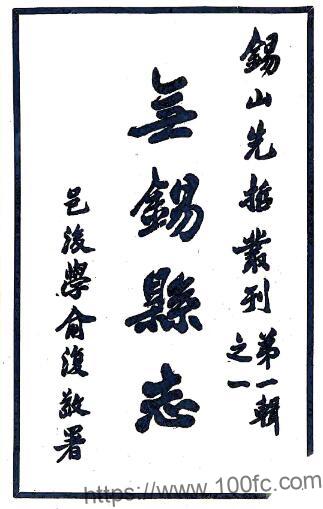 錫山先哲叢刊第一輯之一
無錫縣志
邑後學俞復敬署
https://www.100fc.com